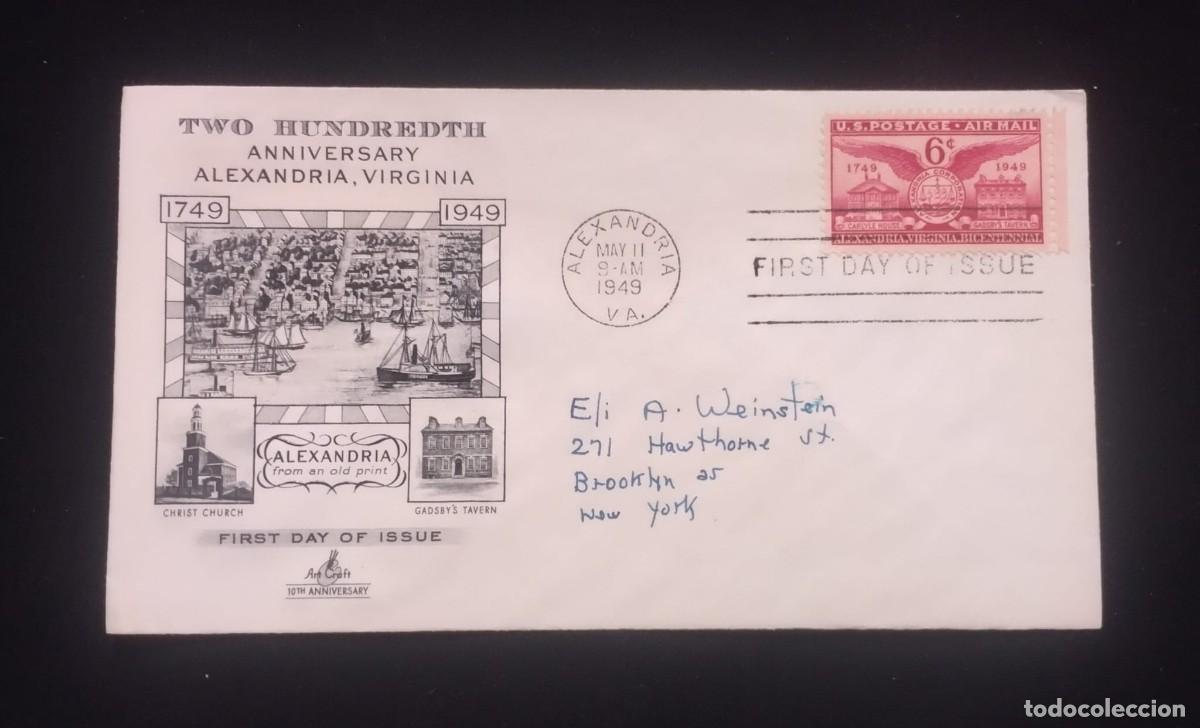 TWO HUNDREDTH
ANNIVERSARY
ALEXANDRIA, VIRGINIA
1749
1949
ALEXANDRIA
from an old print
CHRIST CHURCH
GADSBY'S TAVERN
FIRST DAY OF ISSUE
Art Craft
10TH ANNIVERSARY
ALEXANDRIA
MAY 11
9-AM
1949
VA.
U.S. POSTAGE · AIR MAIL
6¢
1749 1949
CARLYLE HOUSE GADSBY'S TAVERN
ALEXANDRIA, VIRGINIA, BICENTENNIAL
FIRST DAY OF ISSUE
Eli A. Weinstein
271 Hawthorne St.
Brooklyn 25
New York
todocoleccion